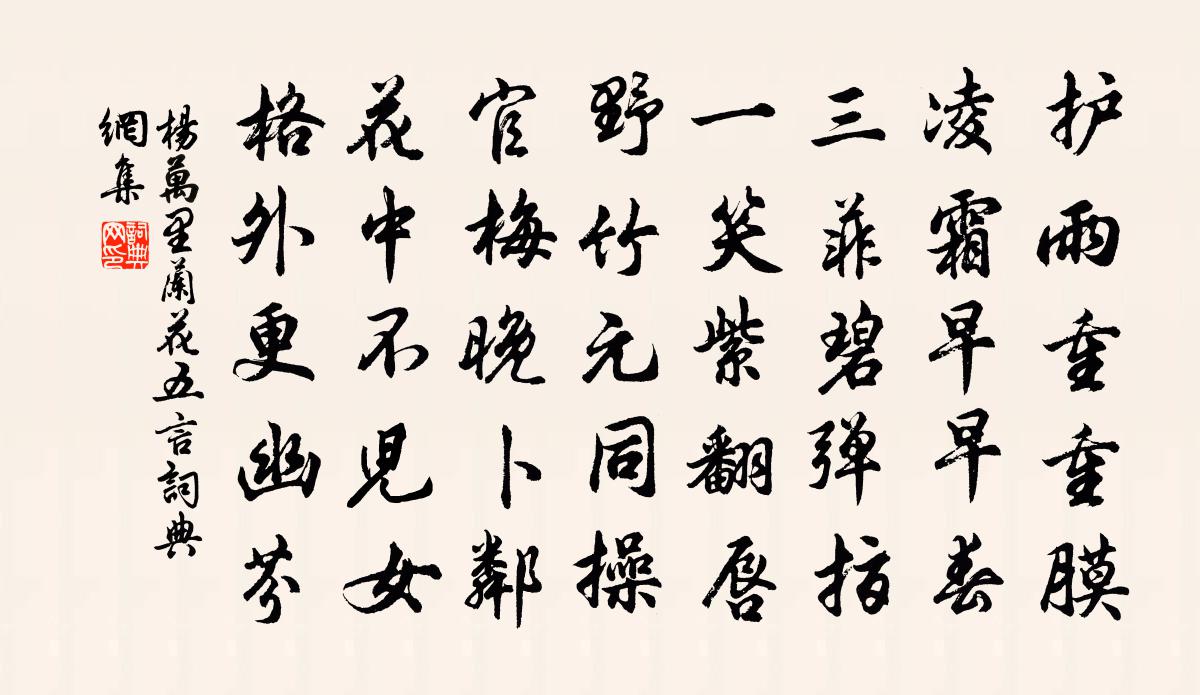 护雨重重膜
凌霜早早春
三菲碧弹指
一笑紫翻唇
野竹元同操
官梅晚卜鄰
花中不児女
格外更幽芬
楊萬里蘭花五言詞典
網集
詞典
网印